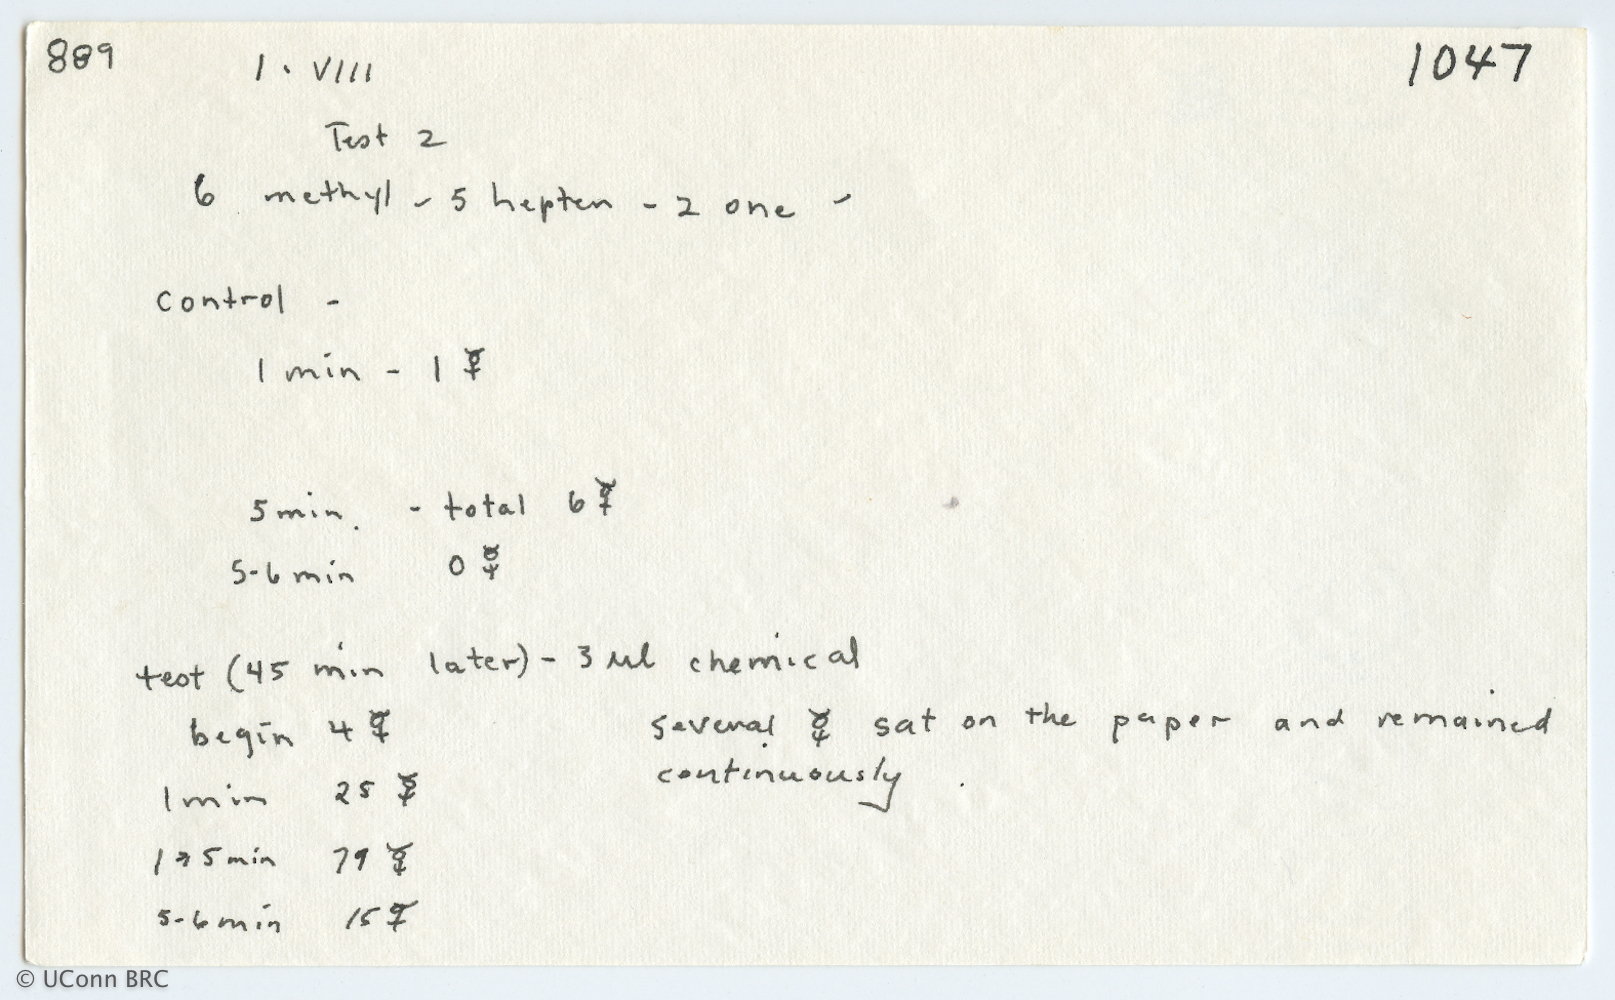 889
1047
1. VIII
Test 2
6 methyl - 5 hepten - 2 one -
control -
1 min - 1 ☿
5 min. - total 6 ☿
5-6 min 0 ☿
test (45 min later) - 3 ul chemical
begin 4 ☿
several ☿ sat on the paper and remained
continuously.
1 min 25 ☿
1→5 min 79 ☿
5-6 min 15 ☿
© UConn BRC